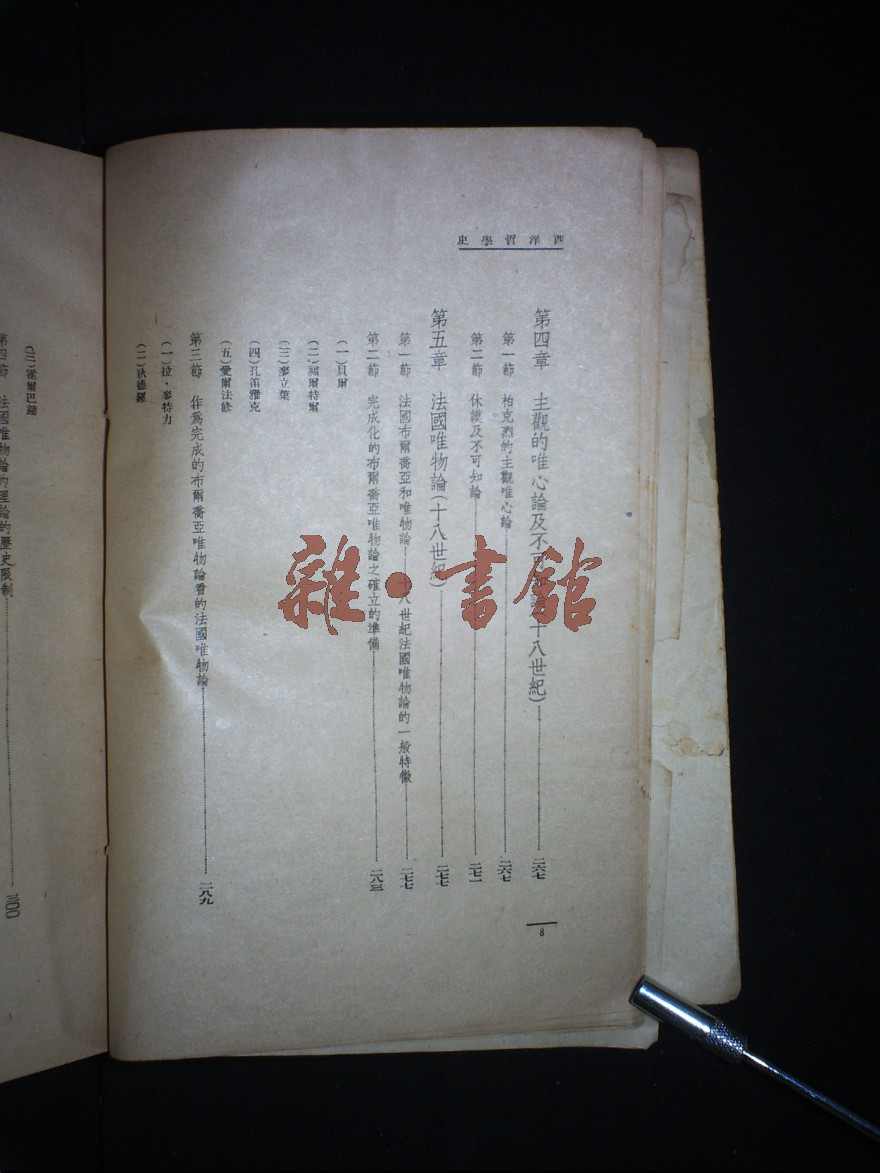 西洋哲學史
第四章 主觀的唯心論及不可知論(十八世紀)……二六七
第一節 柏克烈的主觀唯心論……二六七
第二節 休謨及不可知論……二七一
第五章 法國唯物論(十八世紀)……二七七
第一節 法國布爾喬亞和唯物論——十八世紀法國唯物論的一般特徵……二七七
第二節 完成化的布爾喬亞唯物論之確立的準備……二八三
(一)貝爾
(二)福爾特爾
(三)麥立葉
(四)孔笛雅克
(五)愛爾法修
第三節 作為完成的布爾喬亞唯物論看的法國唯物論……二八九
(一)拉·麥特力
(二)狄德羅
8
(三)霍爾巴赫
第四節 法國唯物論的理論的歷史限制……三〇〇
雜·書館